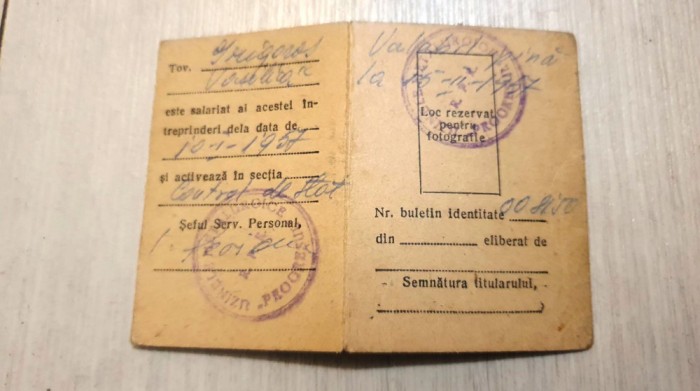 Tov. Grigoros
Vasilica
este salariat al acestei în-
treprinderi dela data de
10-I-1957
și activează în secția
Control de Stat
Șeful Serv. Personal,
UZINELE "PROGRESUL"
Valabil până
la 15-II-1957
"PROGRESUL"
Loc rezervat
pentru
fotografie
Nr. buletin identitate
din eliberat de
Semnătura titularului,